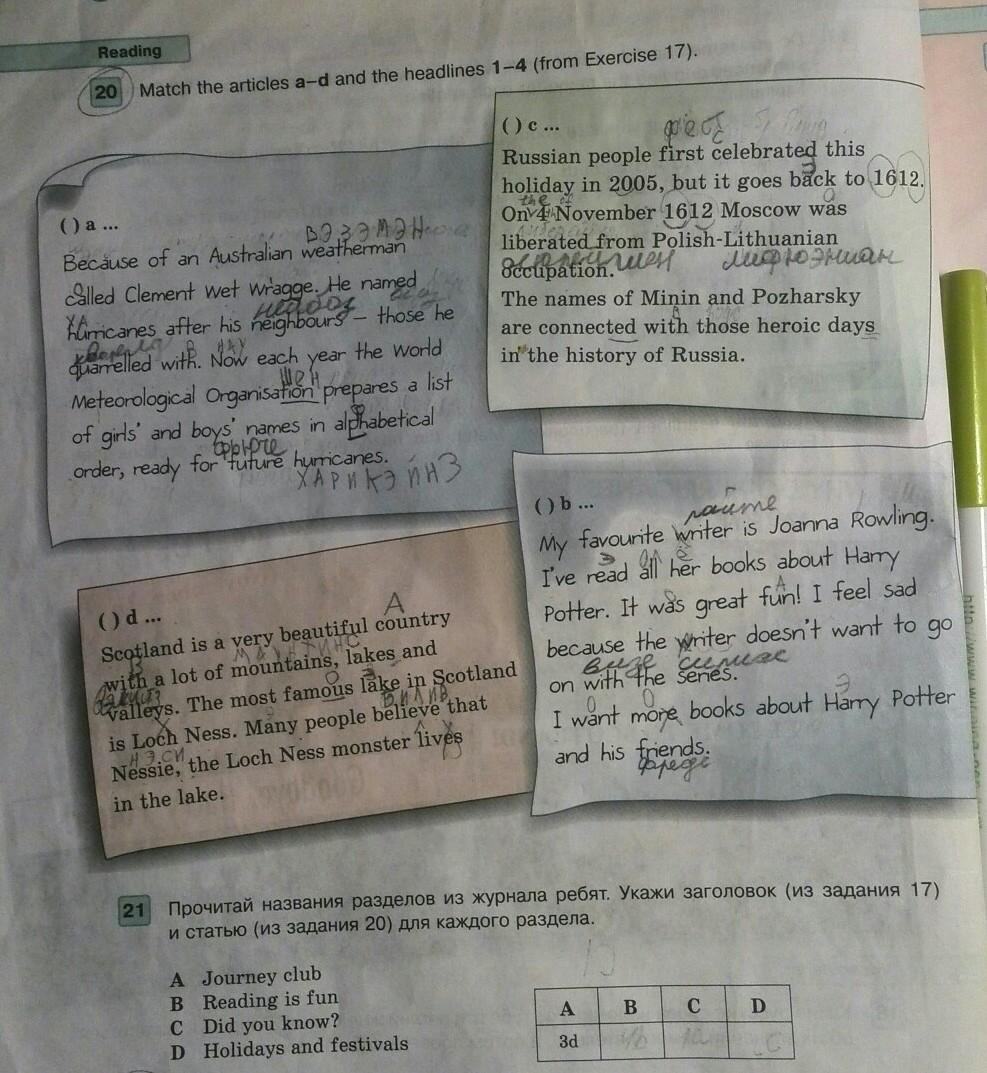 Reading
20 Match the articles a–d and the headlines 1–4 (from Exercise 17).
( ) a ...
ВЭЗЭМЭН
Because of an Australian weatherman
called Clement Wet Wragge. He named
hurricanes after his neighbours – those he
quarrelled with. Now each year the World
шен
Meteorological Organisation prepares a list
of girls' and boys' names in alphabetical
order, ready for future hurricanes.
ХАРИКЭЙНЗ
( ) c ...
фест
Russian people first celebrated this
holiday in 2005, but it goes back to 1612.
the
On 4 November 1612 Moscow was
liberated from Polish-Lithuanian
occupation.
The names of Minin and Pozharsky
are connected with those heroic days
in the history of Russia.
( ) b ...
райте
My favourite writer is Joanna Rowling.
I've read all her books about Harry
Potter. It was great fun! I feel sad
because the writer doesn't want to go
on with the series.
I want more books about Harry Potter
and his friends.
( ) d ...
А
Scotland is a very beautiful country
with a lot of mountains, lakes and
valleys. The most famous lake in Scotland
БИЛИВ
is Loch Ness. Many people believe that
НЭСИ
Nessie, the Loch Ness monster lives
in the lake.
21 Прочитай названия разделов из журнала ребят. Укажи заголовок (из задания 17)
и статью (из задания 20) для каждого раздела.
A Journey club
B Reading is fun
C Did you know?
D Holidays and festivals
A B C D
3d